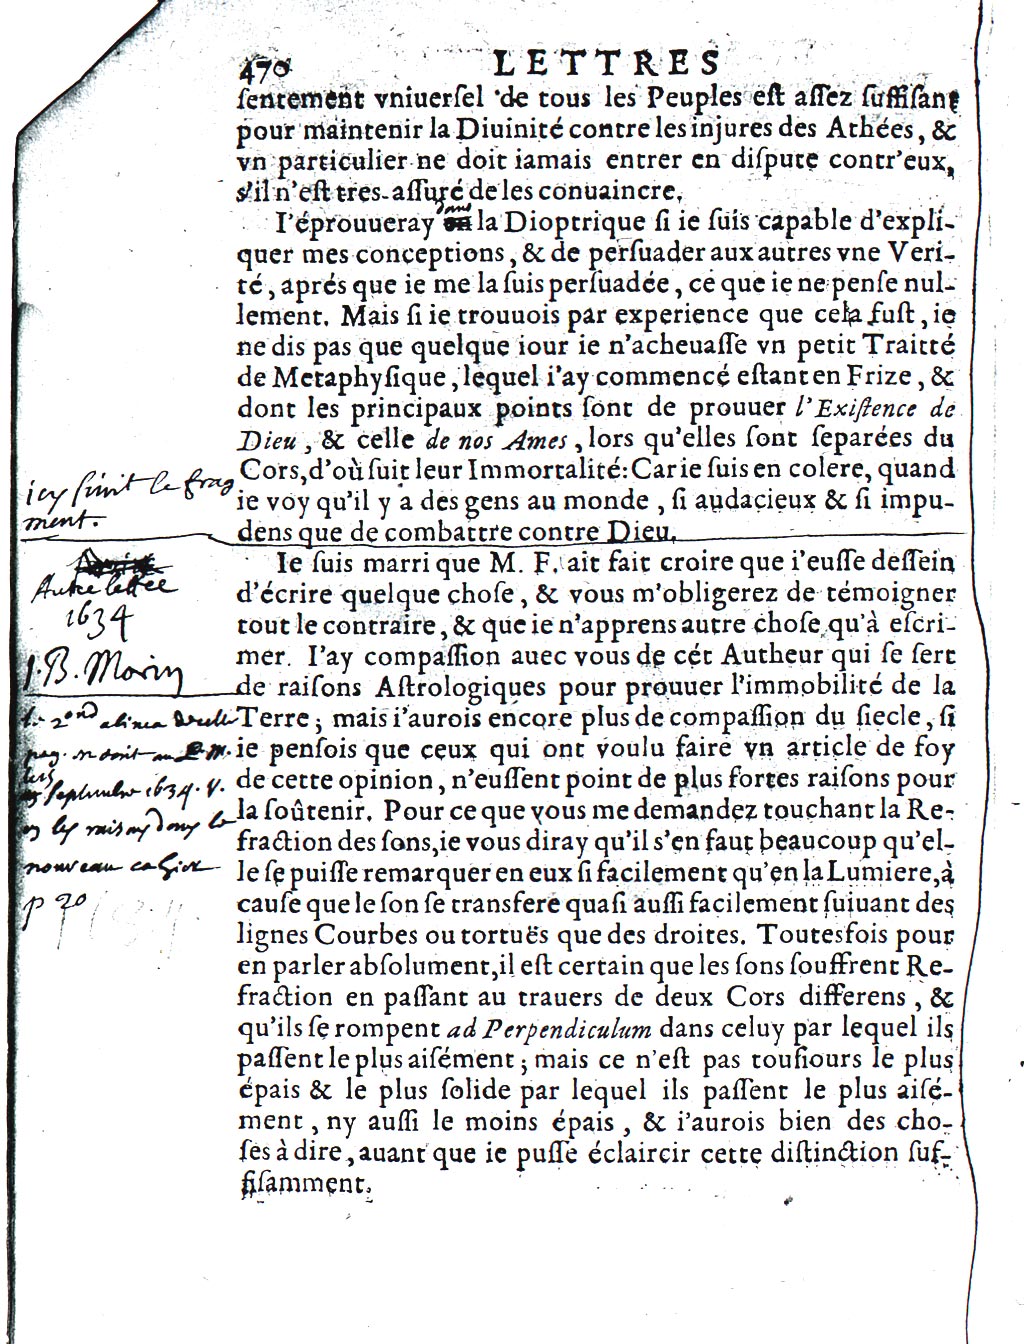 470
LETTRES
ſentement vniuerſel de tous les Peuples eſt aſſez ſuffiſant
pour maintenir la Diuinité contre les injures des Athées, &
vn particulier ne doit iamais entrer en diſpute contr'eux,
s'il n'eſt tres-aſſuré de les conuaincre.
dans
I'éprouueray en la Dioptrique ſi ie ſuis capable d'expli-
quer mes conceptions, & de perſuader aux autres vne Veri-
té, aprés que ie me la ſuis perſuadée, ce que ie ne penſe nul-
lement. Mais ſi ie trouuois par experience que cela fuſt, ie
ne dis pas que quelque iour ie n'acheuaſſe vn petit Traitté
de Metaphyſique, lequel i'ay commencé eſtant en Frize, &
dont les principaux points ſont de prouuer l'Exiſtence de
Dieu, & celle de nos Ames, lors qu'elles ſont ſeparées du
Cors, d'où ſuit leur Immortalité: Car ie ſuis en colere, quand
ie voy qu'il y a des gens au monde, ſi audacieux & ſi impu-
dens que de combattre contre Dieu.
icy finit le frag
ment.
Autre lettre
1634
J. B. Morin
Ie ſuis marri que M. F. ait fait croire que i'euſſe deſſein
d'écrire quelque choſe, & vous m'obligerez de témoigner
tout le contraire, & que ie n'apprens autre choſe qu'à eſcri-
mer. I'ay compaſſion auec vous de cét Autheur qui ſe ſert
de raiſons Aſtrologiques pour prouuer l'immobilité de la
Terre; mais i'aurois encore plus de compaſſion du ſiecle, ſi
ie penſois que ceux qui ont voulu faire vn article de foy
de cette opinion, n'euſſent point de plus fortes raiſons pour
la ſoûtenir. Pour ce que vous me demandez touchant la Re-
fraction des ſons, ie vous diray qu'il s'en faut beaucoup qu'el-
le ſe puiſſe remarquer en eux ſi facilement qu'en la Lumiere, à
cauſe que le ſon ſe transfere quaſi auſſi facilement ſuiuant des
lignes Courbes ou tortuës que des droites. Toutesfois pour
en parler abſolument, il eſt certain que les ſons ſouffrent Re-
fraction en paſſant au trauers de deux Cors differens, &
qu'ils ſe rompent ad Perpendiculum dans celuy par lequel ils
paſſent le plus aiſément; mais ce n'eſt pas touſiours le plus
épais & le plus ſolide par lequel ils paſſent le plus aiſé-
ment, ny auſſi le moins épais, & i'aurois bien des cho-
ſes à dire, auant que ie puſſe éclaircir cette diſtinction ſuf-
fiſamment.
le 2ond alinea de cette
pag.
septembre 1634. V.
les raisons dans le
nouveau cahier
p 20